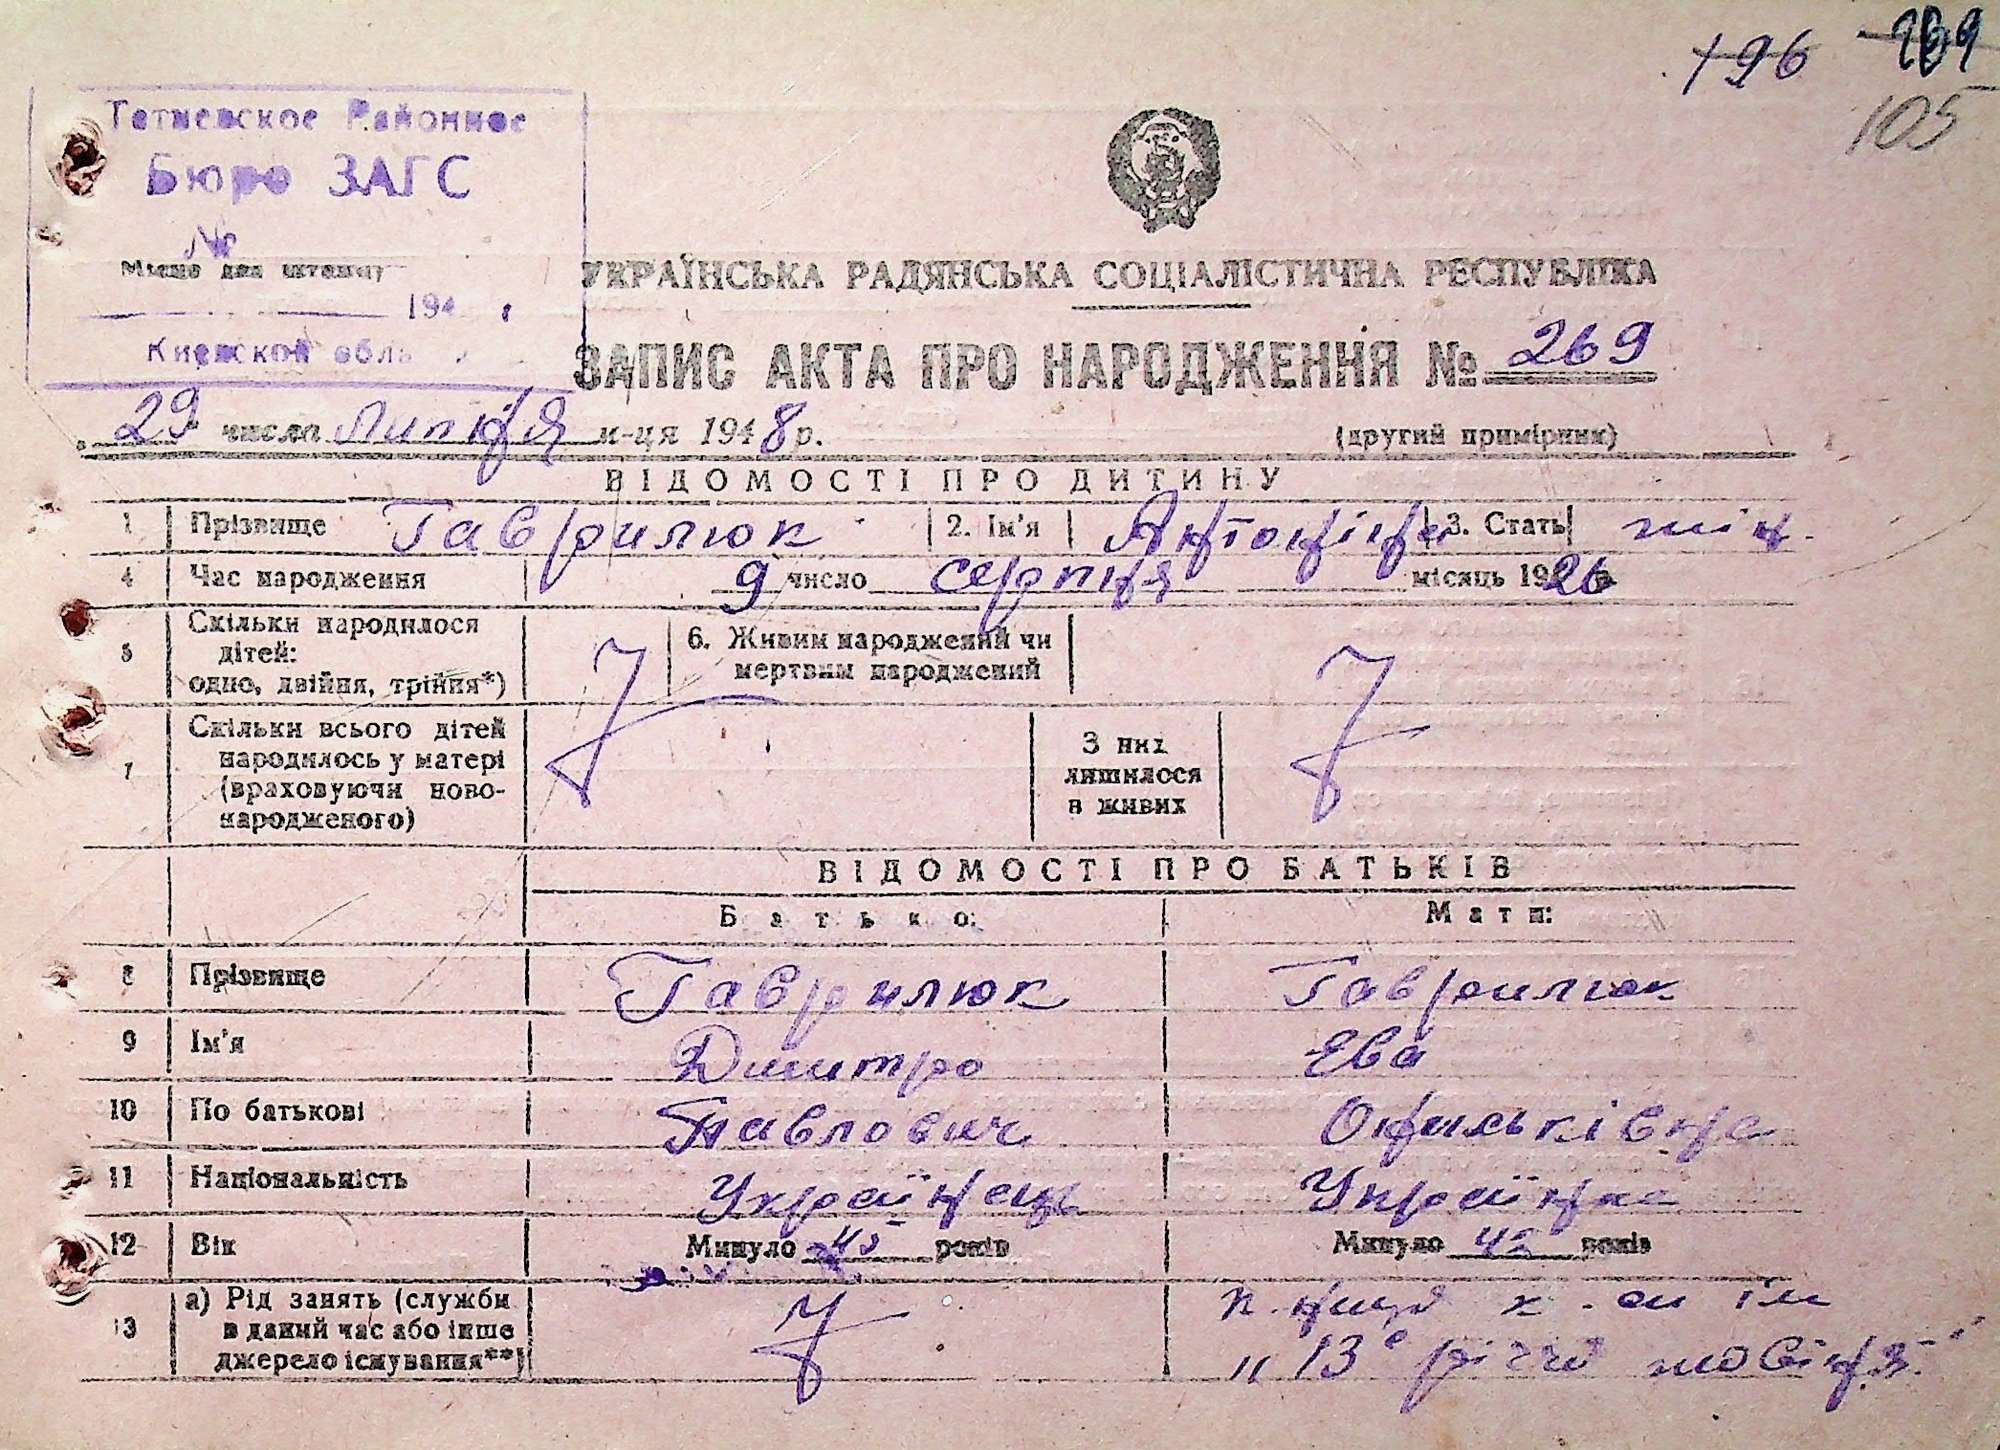 196 269
105
Тетиевское Районное
Бюро ЗАГС
№
Місце для штампу
194
Киевской обл
УКРАЇНСЬКА РАДЯНСЬКА СОЦІАЛІСТИЧНА РЕСПУБЛІКА
ЗАПИС АКТА ПРО НАРОДЖЕННЯ № 269
"29" числа Липня м-ця 1948 р. (другий примірник)
ВІДОМОСТІ ПРО ДИТИНУ
1 Прізвище Гаврилюк 2. Ім'я Антоніна 3. Стать жін.
4 Час народження 9 число серпня місяць 1926 р.
5 Скільки народилося дітей: одно, двійня, трійня*) 6. Живим народжений чи мертвим народжений
7 Скільки всього дітей народилось у матері (враховуючи новонародженого) З них лишилося в живих
ВІДОМОСТІ ПРО БАТЬКІВ
Батько: Мати:
8 Прізвище Гаврилюк Гаврилюк
9 Ім'я Дмитро Ева
10 По батькові Павлович
11 Національність Українець Українка
12 Вік Минуло років Минуло років
13 а) Рід занять (служби в даний час або інше джерело існування**) к-п ім
"13 річчя жовтня"